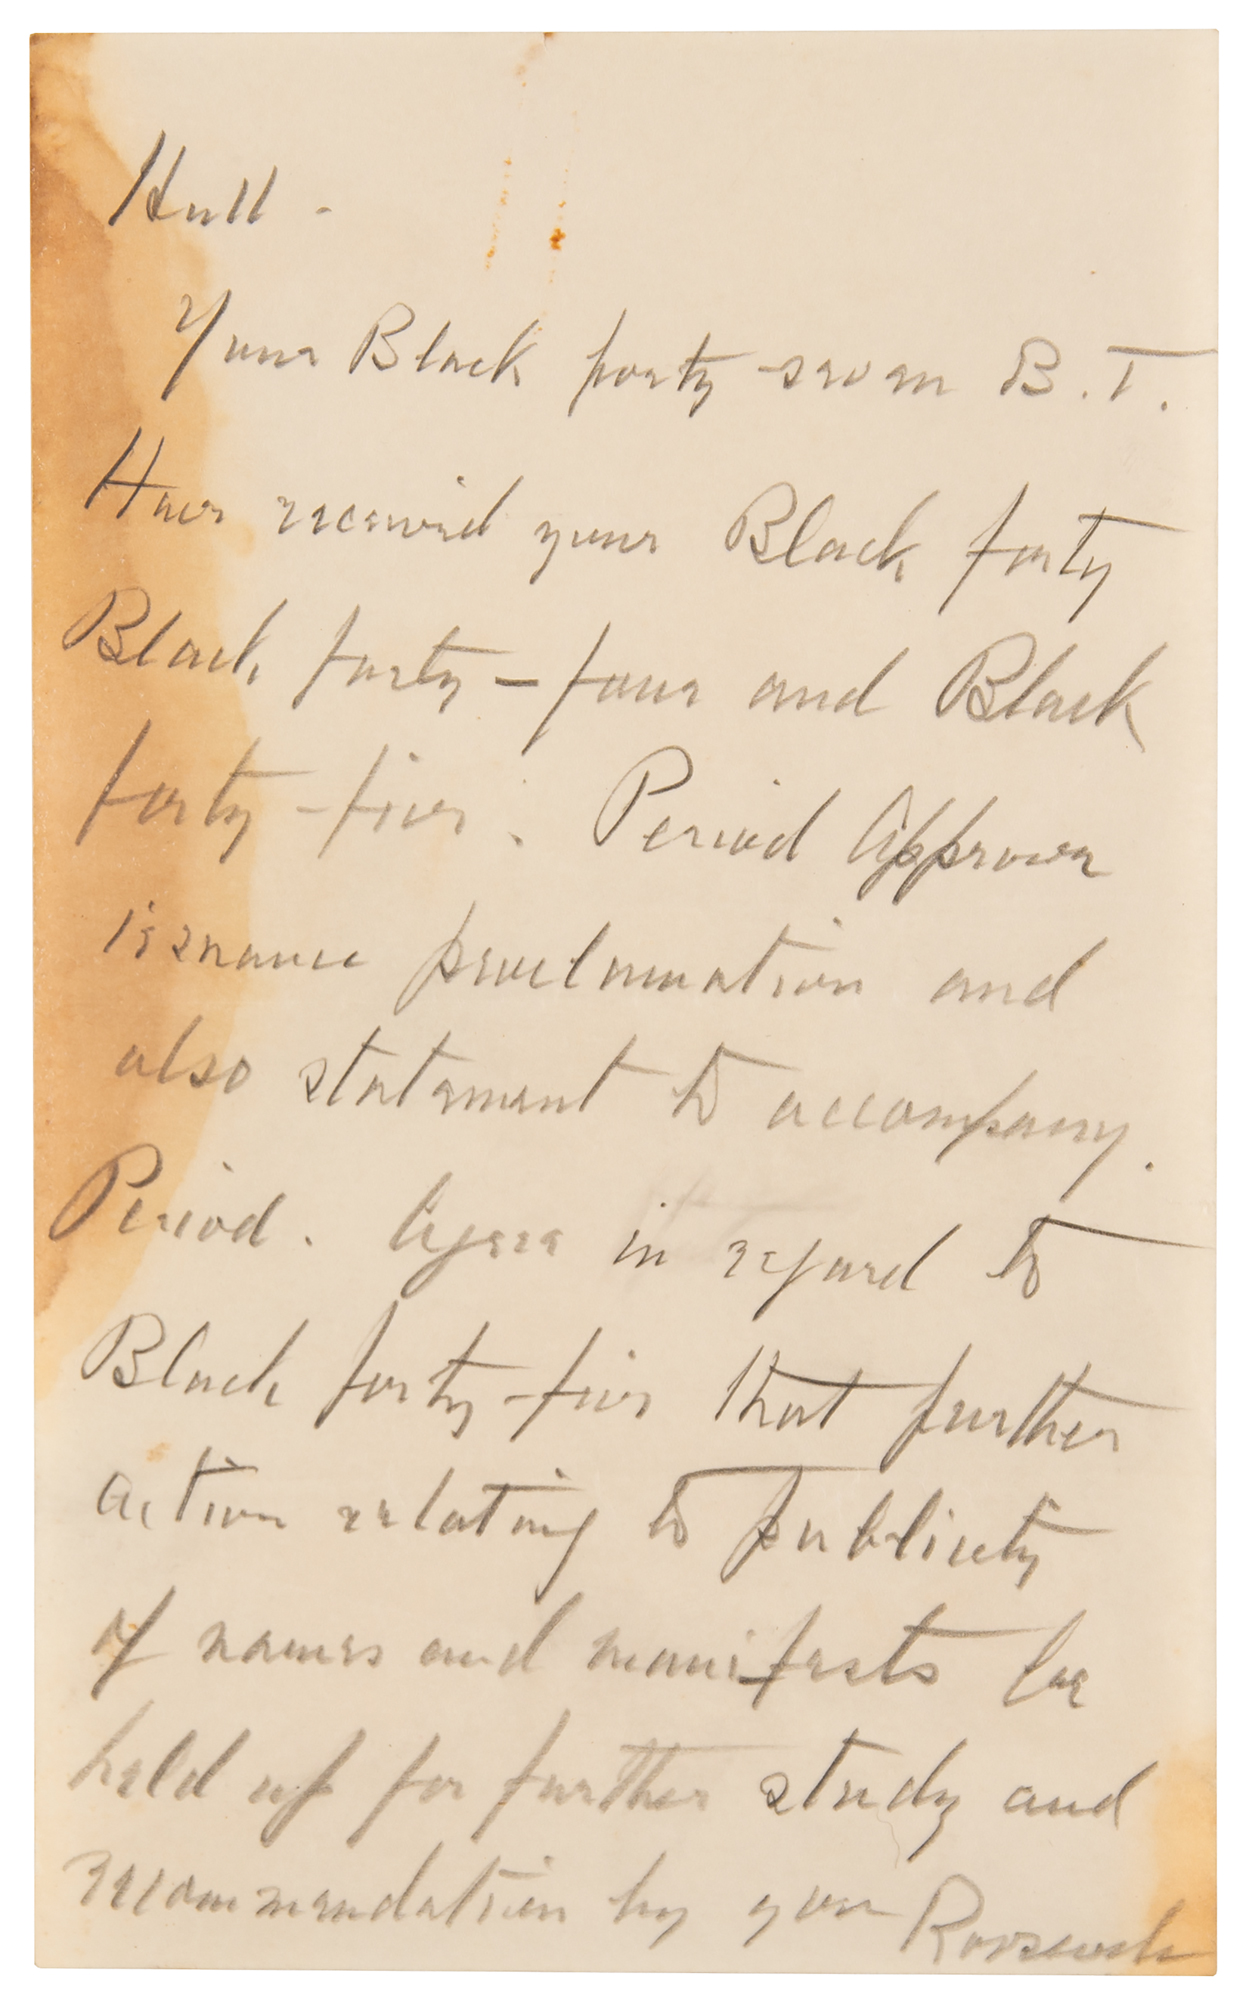 Hull -
Your Black forty seven B.T.
Have received your Black forty
Black forty-four and Black
forty-five. Period Approve
issuance proclamation and
also statement to accompany.
Period. Agree in regard to
Black forty-five that further
action relating to publicity
of names and manifests be
held up for further study and
recommendation by you Roosevelt